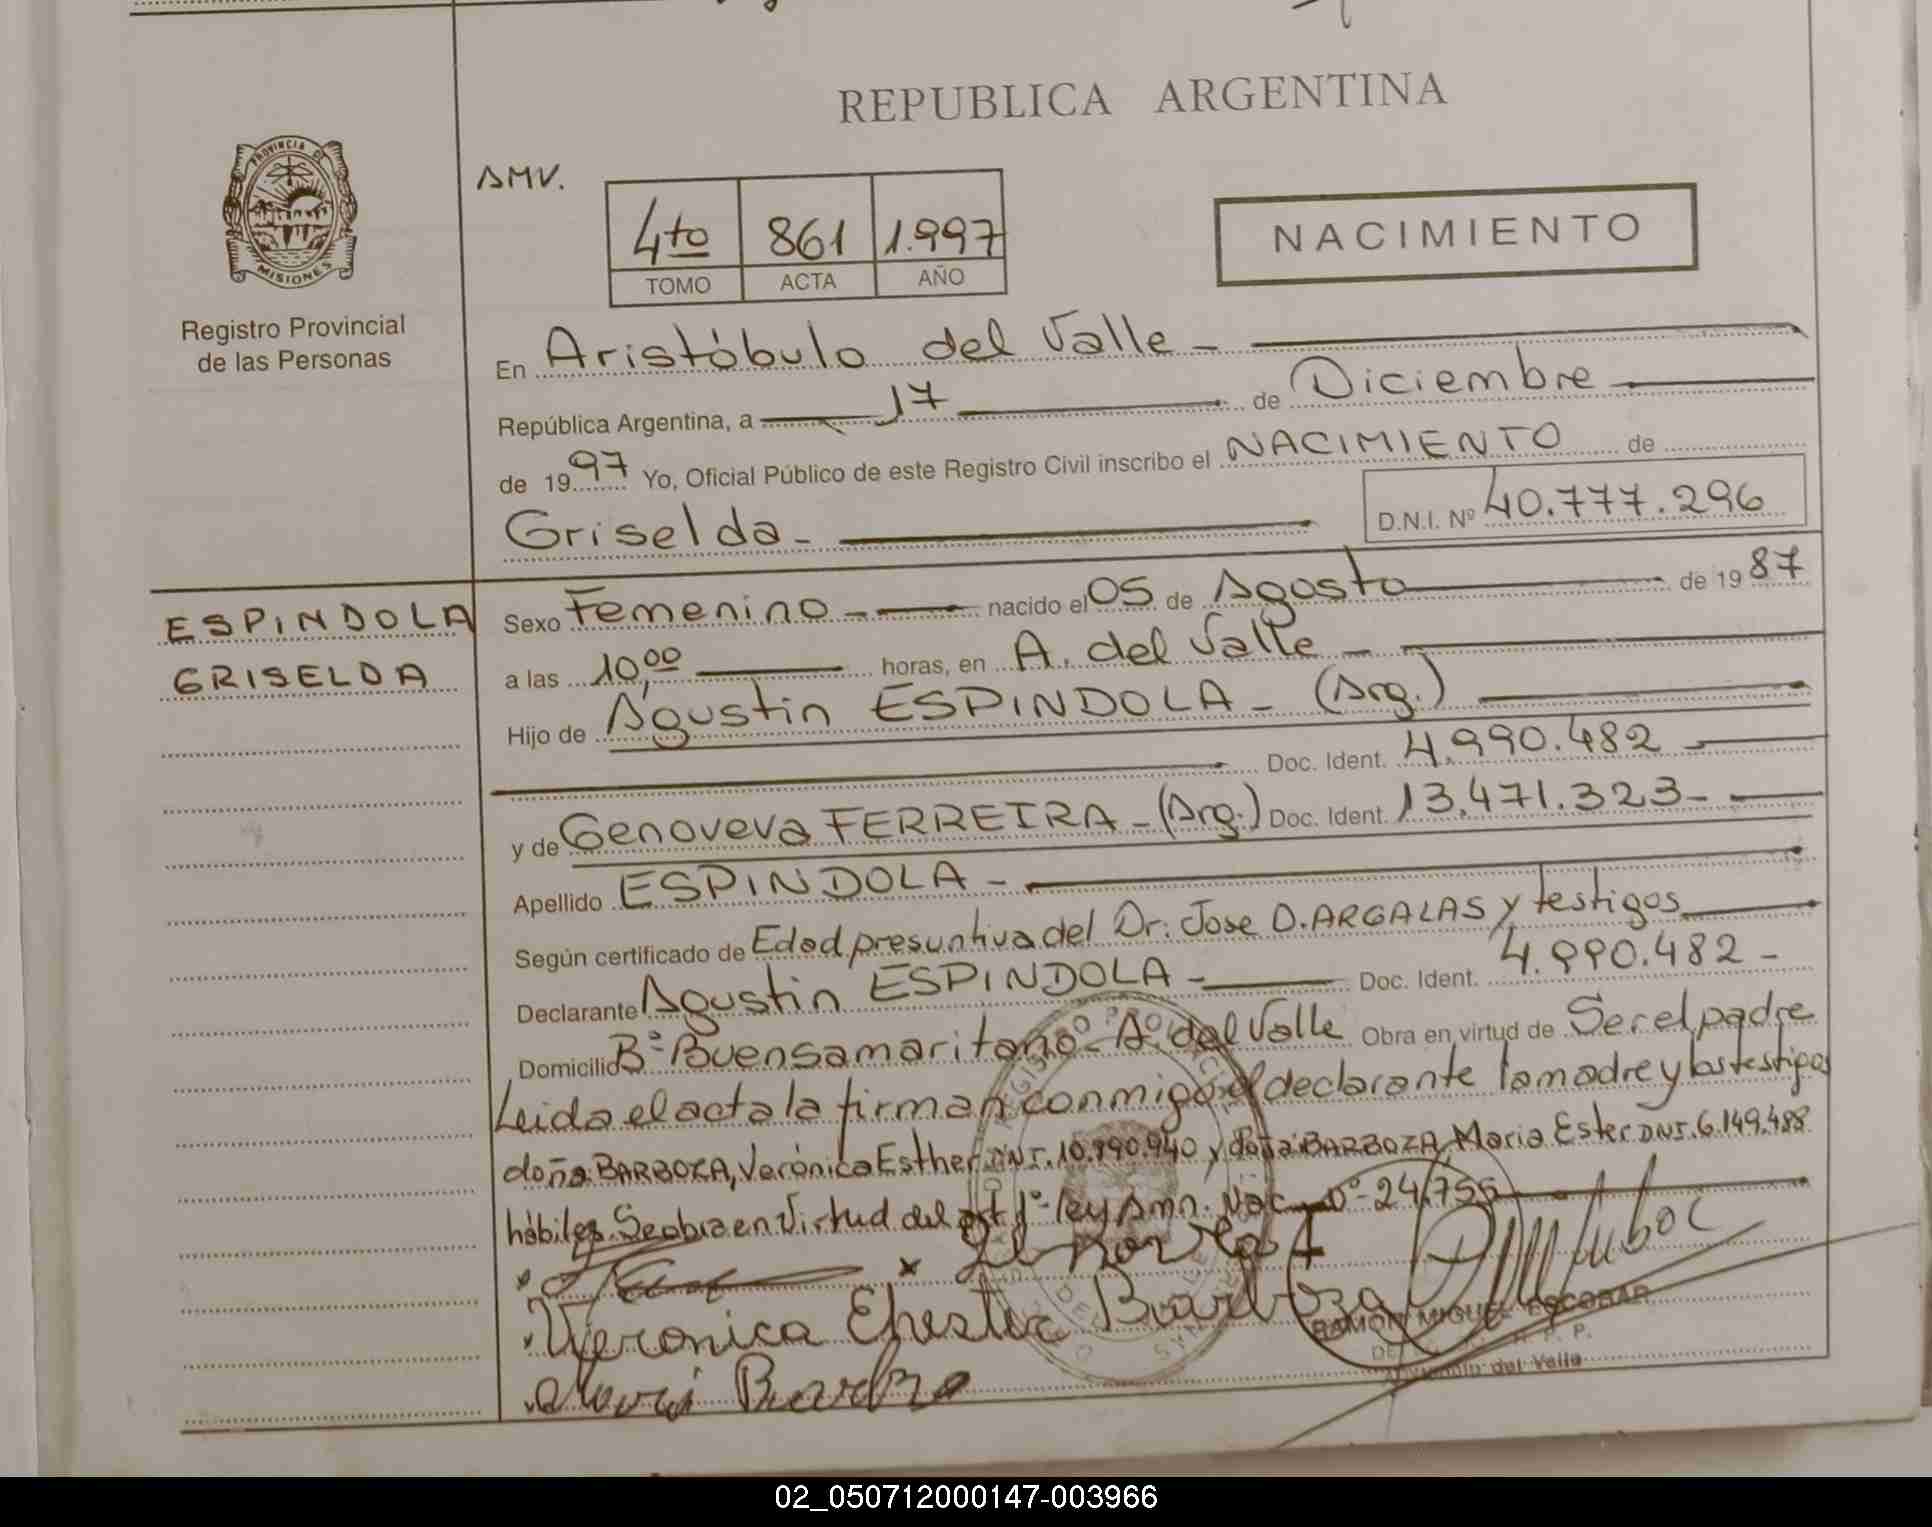 REPUBLICA ARGENTINA
PROVINCIA DE
MISIONES
Registro Provincial
de las Personas
AMV.
4to 861 1.997
TOMO ACTA AÑO
NACIMIENTO
En Aristóbulo del Valle -
República Argentina, a 17 de Diciembre
de 1997 Yo, Oficial Público de este Registro Civil inscribo el NACIMIENTO de
Griselda - D.N.I. Nº 40.777.296
ESPINDOLA
GRISELDA
Sexo Femenino - nacido el 05 de Agosto de 1987
a las 10,00 horas, en A. del Valle -
Hijo de Agustin ESPINDOLA - (Arg.)
Doc. Ident. 4.990.482
y de Genoveva FERREIRA - (Arg.) Doc. Ident. 13.471.323 -
Apellido ESPINDOLA -
Según certificado de Edad presuntiva del Dr. Jose D. ARGALAS y testigos
Declarante Agustin ESPINDOLA - Doc. Ident. 4.990.482 -
Domicilio Bº Buen samaritano - A. del Valle Obra en virtud de Ser el padre
Leida el acta la firman conmigo el declarante la madre y los testigos
doña BARBOZA, Verónica Esther DNI. 10.990.940 y doña BARBOZA, Maria Ester DNI. 6.149.488
hábiles. Se obra en Virtud del art 1º ley Amn. Nac. Nº 24.755
Veronica Ehester Barboza
RAMON MIGUEL ESCOBAR
R. P. P.
del Valle
02_050712000147-003966